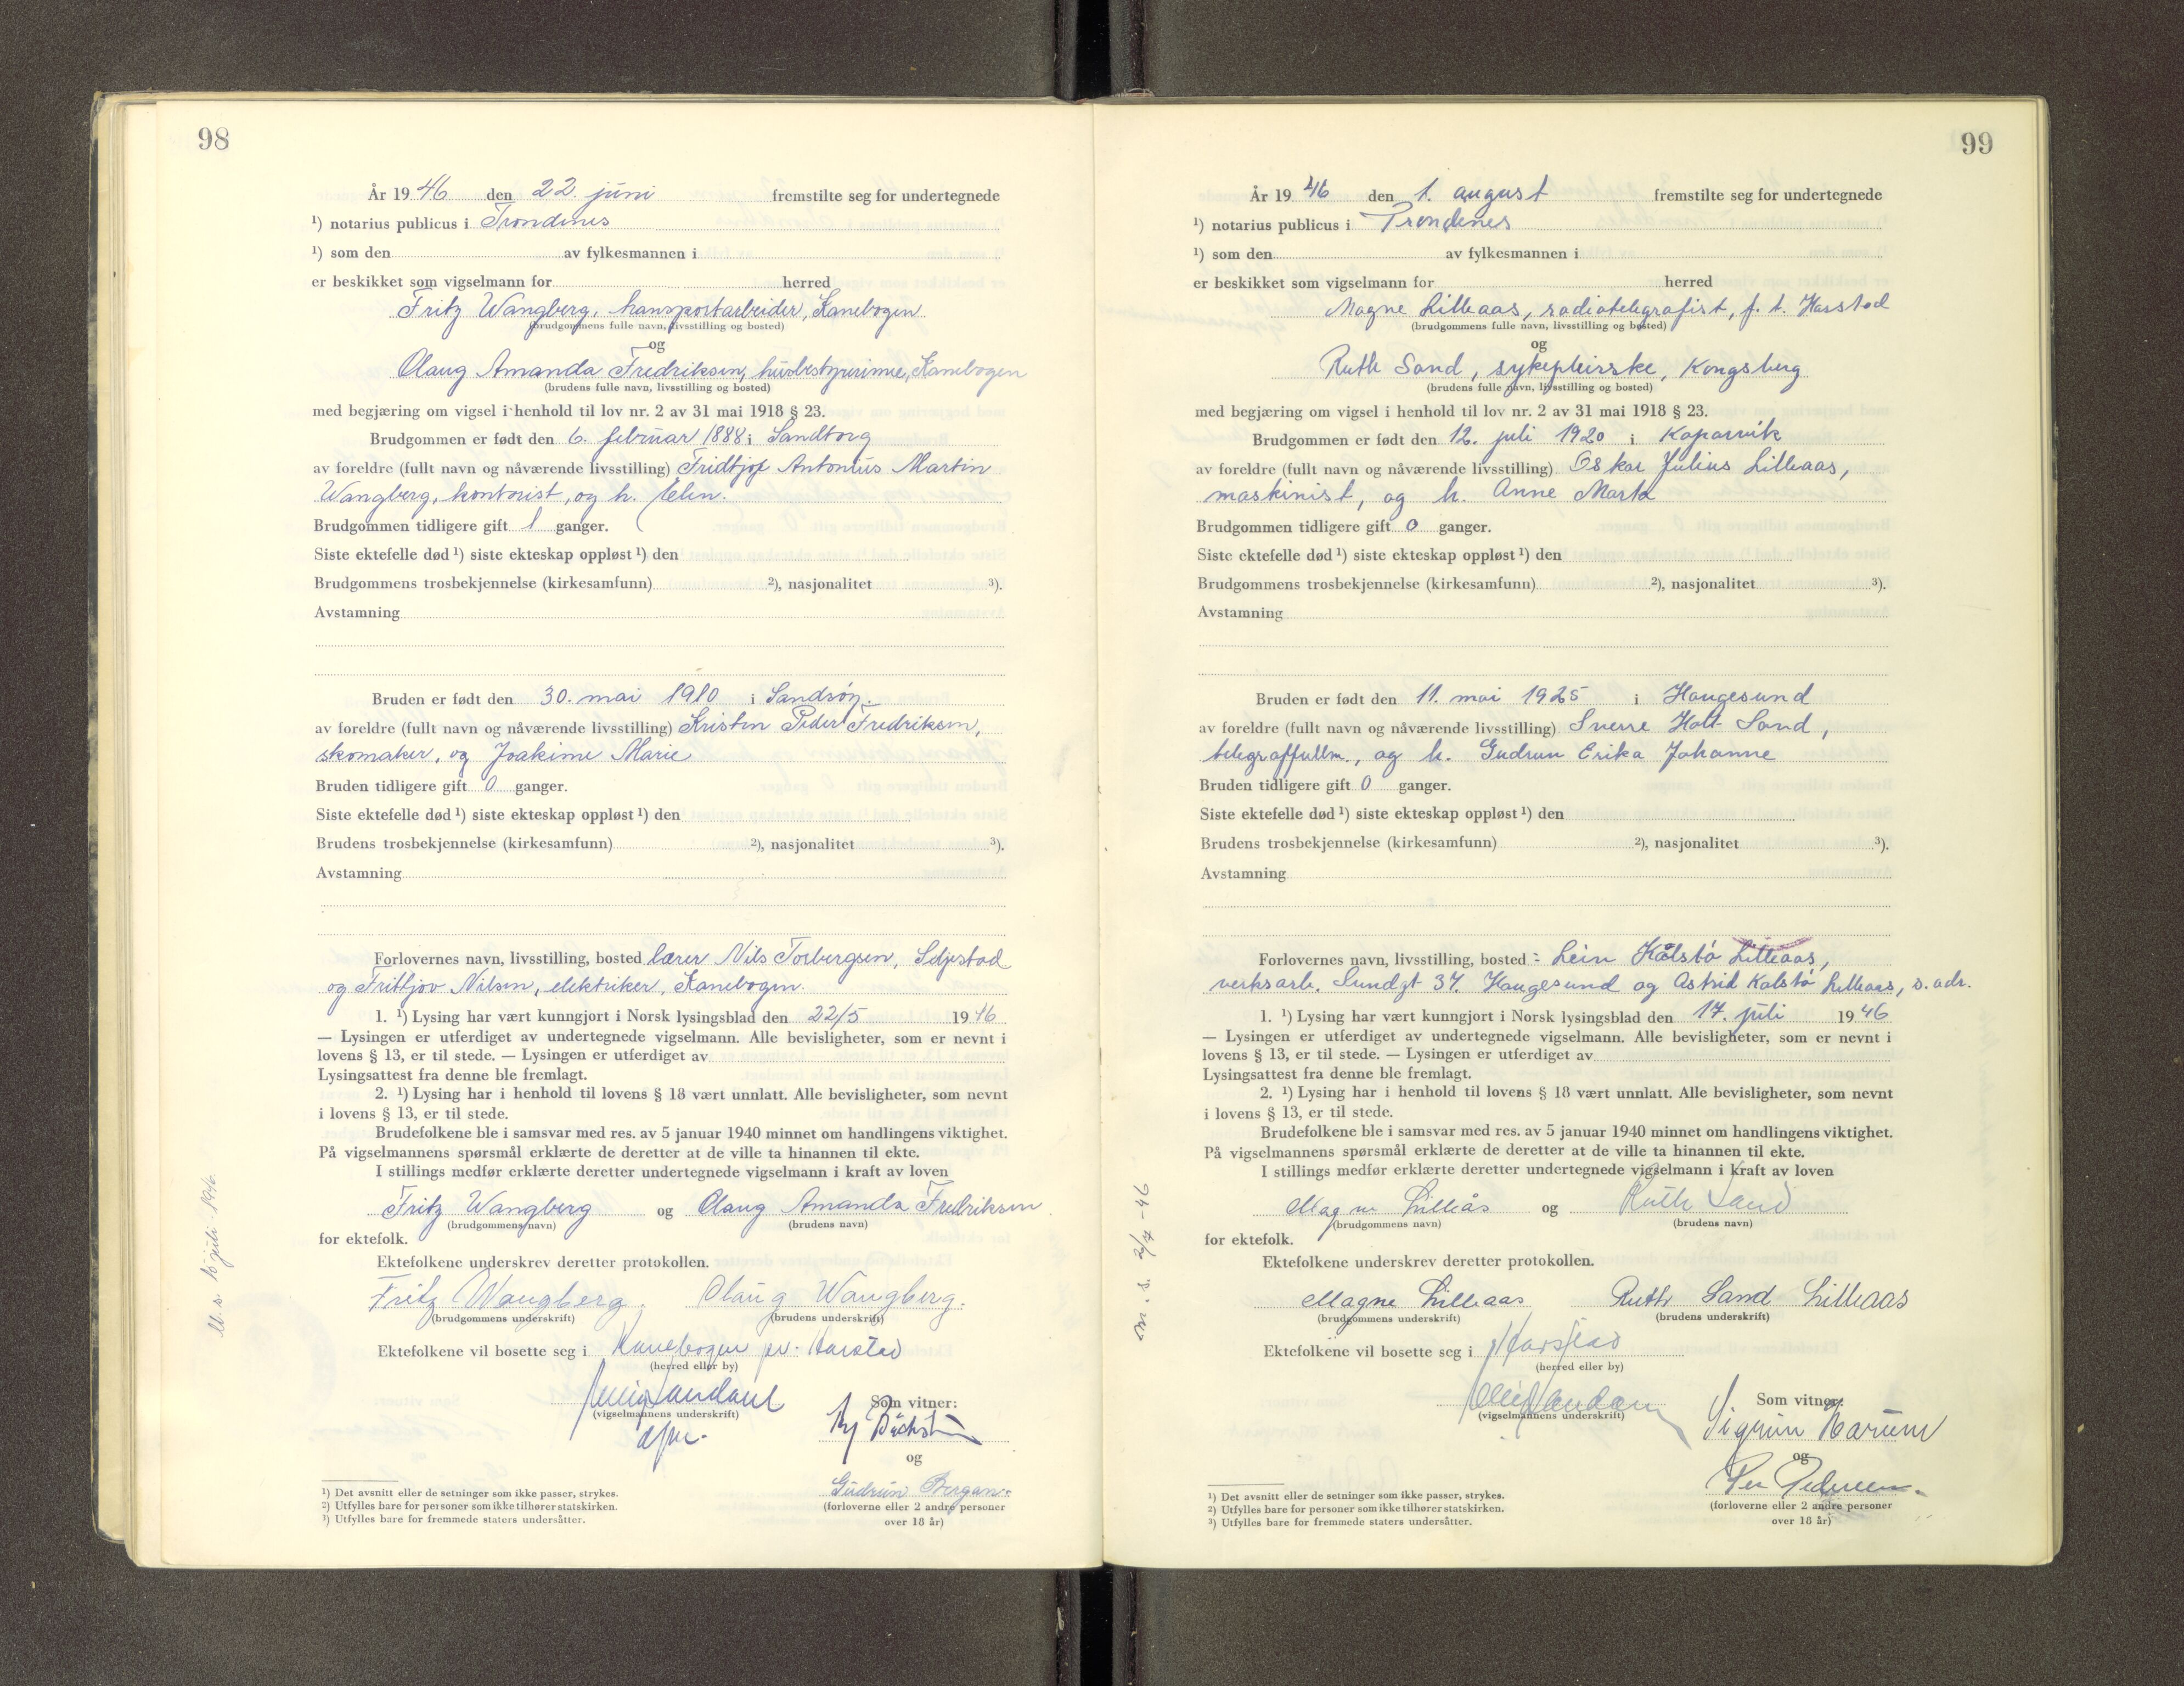 98
År 1946 den 22. juni fremstilte seg for undertegnede
¹) notarius publicus i Trondenes
¹) som den av fylkesmannen i
er beskikket som vigselmann for herred
Fritz Wangberg, transportarbeider, Kanebogen
(brudgommens fulle navn, livsstilling og bosted)
og
Olaug Amanda Fredriksen, husbestyrerinne, Kanebogen
(brudens fulle navn, livsstilling og bosted)
med begjæring om vigsel i henhold til lov nr. 2 av 31 mai 1918 § 23.
Brudgommen er født den 6. februar 1888 i Sandtorg
av foreldre (fullt navn og nåværende livsstilling) Fridtjof Antonius Martin
Wangberg, kontorist, og h. Elen.
Brudgommen tidligere gift 1 ganger.
Siste ektefelle død ¹) siste ekteskap oppløst ¹) den
Brudgommens trosbekjennelse (kirkesamfunn) ²), nasjonalitet ³).
Avstamning
Bruden er født den 30. mai 1910 i Sandsøy.
av foreldre (fullt navn og nåværende livsstilling) Kristen Peder Fredriksen,
skomaker, og Joakime Marie
Bruden tidligere gift 0 ganger.
Siste ektefelle død ¹) siste ekteskap oppløst ¹) den
Brudens trosbekjennelse (kirkesamfunn) ²), nasjonalitet ³).
Avstamning
Forlovernes navn, livsstilling, bosted lærer Nils Torbergsen, Seljestad
og Frittjov Nilsen, elektriker, Kanebogen.
1. ¹) Lysing har vært kunngjort i Norsk lysingsblad den 22/5 1946
— Lysingen er utferdiget av undertegnede vigselmann. Alle bevisligheter, som er nevnt i
lovens § 13, er til stede. — Lysingen er utferdiget av
Lysingsattest fra denne ble fremlagt.
2. ¹) Lysing har i henhold til lovens § 18 vært unnlatt. Alle bevisligheter, som nevnt
i lovens § 13, er til stede.
Brudefolkene ble i samsvar med res. av 5 januar 1940 minnet om handlingens viktighet.
På vigselmannens spørsmål erklærte de deretter at de ville ta hinannen til ekte.
I stillings medfør erklærte deretter undertegnede vigselmann i kraft av loven
Fritz Wangberg og Olaug Amanda Fredriksen
(brudgommens navn) (brudens navn)
for ektefolk.
Ektefolkene underskrev deretter protokollen.
Fritz Wangberg. Olaug Wangberg.
(brudgommens underskrift) (brudens underskrift)
Ektefolkene vil bosette seg i Kanebogen pr. Harstad
(herred eller by)
Som vitner:
(vigselmannens underskrift)
og
Gudrun Bergan
(forloverne eller 2 andre personer
over 18 år)
¹) Det avsnitt eller de setninger som ikke passer, strykes.
²) Utfylles bare for personer som ikke tilhører statskirken.
³) Utfylles bare for fremmede staters undersåtter.
M. s. 10 juli 1946.
99
År 1946 den 1. august fremstilte seg for undertegnede
¹) notarius publicus i Trondenes
¹) som den av fylkesmannen i
er beskikket som vigselmann for herred
Magne Lilleaas, radiotelegrafist, f. t. Harstad
(brudgommens fulle navn, livsstilling og bosted)
og
Ruth Sand, sykepleirske, Kongsberg
(brudens fulle navn, livsstilling og bosted)
med begjæring om vigsel i henhold til lov nr. 2 av 31 mai 1918 § 23.
Brudgommen er født den 12. juli 1920 i Kopervik
av foreldre (fullt navn og nåværende livsstilling) Oskar Julius Lilleaas,
maskinist, og h. Anne Marta
Brudgommen tidligere gift 0 ganger.
Siste ektefelle død ¹) siste ekteskap oppløst ¹) den
Brudgommens trosbekjennelse (kirkesamfunn) ²), nasjonalitet ³).
Avstamning
Bruden er født den 11. mai 1925 i Haugesund
av foreldre (fullt navn og nåværende livsstilling) Sverre Holt Sand,
telegraffullm., og h. Gudrun Erika Johanne
Bruden tidligere gift 0 ganger.
Siste ektefelle død ¹) siste ekteskap oppløst ¹) den
Brudens trosbekjennelse (kirkesamfunn) ²), nasjonalitet ³).
Avstamning
Forlovernes navn, livsstilling, bosted: Lein Kålstø Lilleaas,
verksarb. Sundgt 37. Haugesund og Astrid Kalstø Lilleaas, s. adr.
1. ¹) Lysing har vært kunngjort i Norsk lysingsblad den 17. juli 1946
— Lysingen er utferdiget av undertegnede vigselmann. Alle bevisligheter, som er nevnt i
lovens § 13, er til stede. — Lysingen er utferdiget av
Lysingsattest fra denne ble fremlagt.
2. ¹) Lysing har i henhold til lovens § 18 vært unnlatt. Alle bevisligheter, som nevnt
i lovens § 13, er til stede.
Brudefolkene ble i samsvar med res. av 5 januar 1940 minnet om handlingens viktighet.
På vigselmannens spørsmål erklærte de deretter at de ville ta hinannen til ekte.
I stillings medfør erklærte deretter undertegnede vigselmann i kraft av loven
Magne Lilleås og Ruth Sand
(brudgommens navn) (brudens navn)
for ektefolk.
Ektefolkene underskrev deretter protokollen.
Magne Lilleaas Ruth Sand Lilleaas
(brudgommens underskrift) (brudens underskrift)
Ektefolkene vil bosette seg i Harstad
(herred eller by)
Som vitner:
(vigselmannens underskrift)
Sigrun Karum
og
Per Pedersen
(forloverne eller 2 andre personer
over 18 år)
¹) Det avsnitt eller de setninger som ikke passer, strykes.
²) Utfylles bare for personer som ikke tilhører statskirken.
³) Utfylles bare for fremmede staters undersåtter.
m. s. 2/7-46